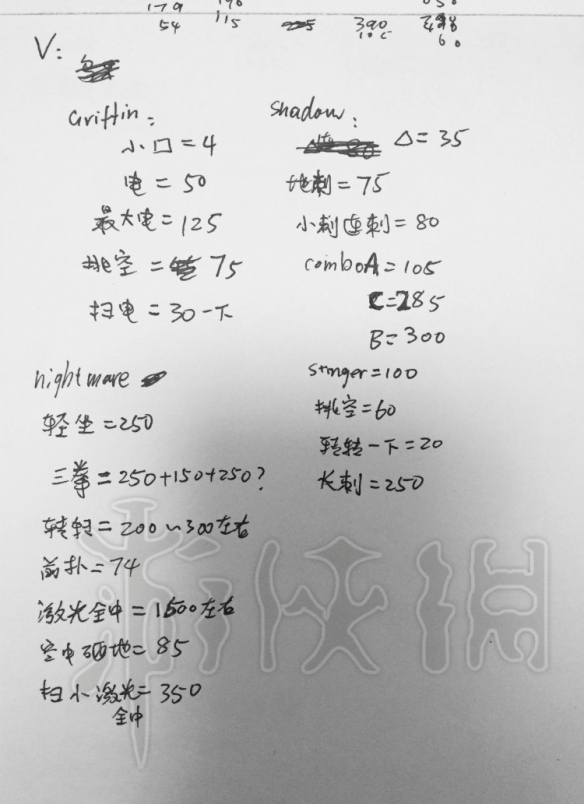 179
54
115
390
60
V:
Griffin:
小口=4
电=50
最大电=125
挑空=75
扫电=30一下
Shadow:
△=35
地刺=75
小刺连刺=80
comboA=105
C=285
B=300
stinger=100
挑空=60
转转一下=20
长刺=250
nightmare
轻坐=250
三拳=250+150+250?
转转=200~300左右
前扑=74
激光全中=1500左右
空中砸地=85
扫小激光=350
全中
游侠网